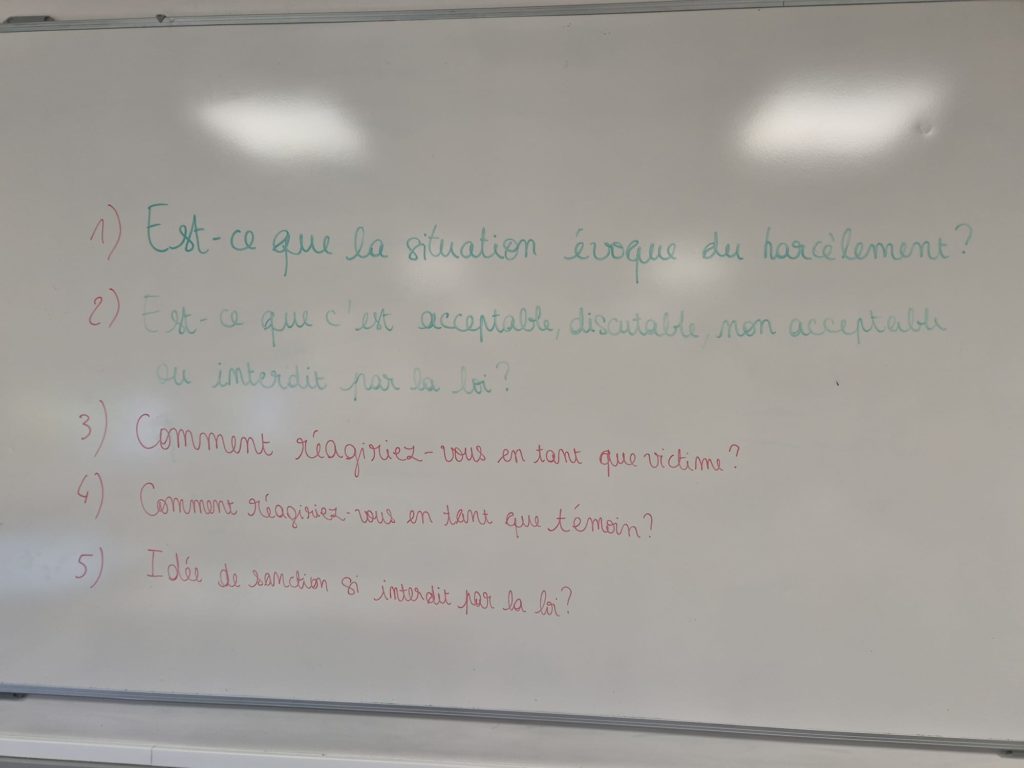 1) Est-ce que la situation évoque du harcèlement ?
2) Est-ce que c'est acceptable, discutable, non acceptable
ou interdit par la loi ?
3) Comment réagiriez-vous en tant que victime ?
4) Comment réagiriez-vous en tant que témoin ?
5) Idée de sanction si interdit par la loi ?